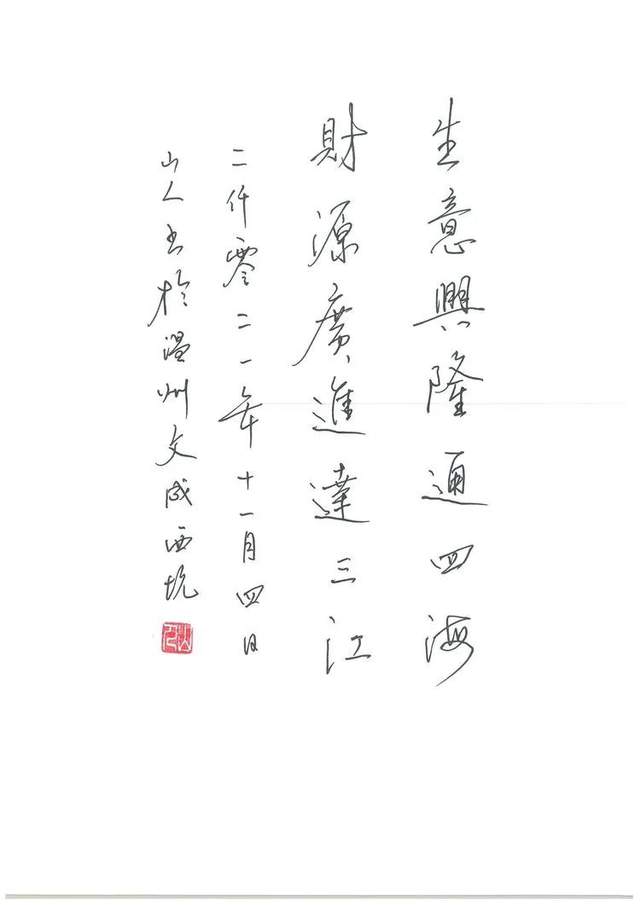 生意興隆通四海
財源廣進達三江
二仟零二一年十一月四日
山人书於温州文成西坑